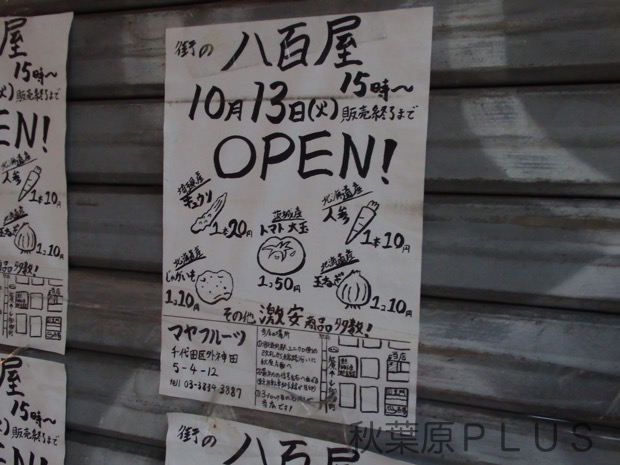 街の
八百屋
15時〜
10月13日(火)販売終るまで
OPEN!
埼玉産
キュウリ
1本20円
茨城産
トマト大玉
1コ50円
北海道産
人参
1本10円
北海道産
じゃがいも
1コ10円
北海道産
玉ねぎ
1コ10円
その他 激安商品多数!
マヤフルーツ
千代田区外神田
5-4-12
tel 03-3839-3887
屋
15時〜
火)販売終るまで
EN!
北海道産
人参
1本10円
玉ねぎ
1コ10円
品多数!
屋
15時〜
街の
八百屋
秋葉原PLUS